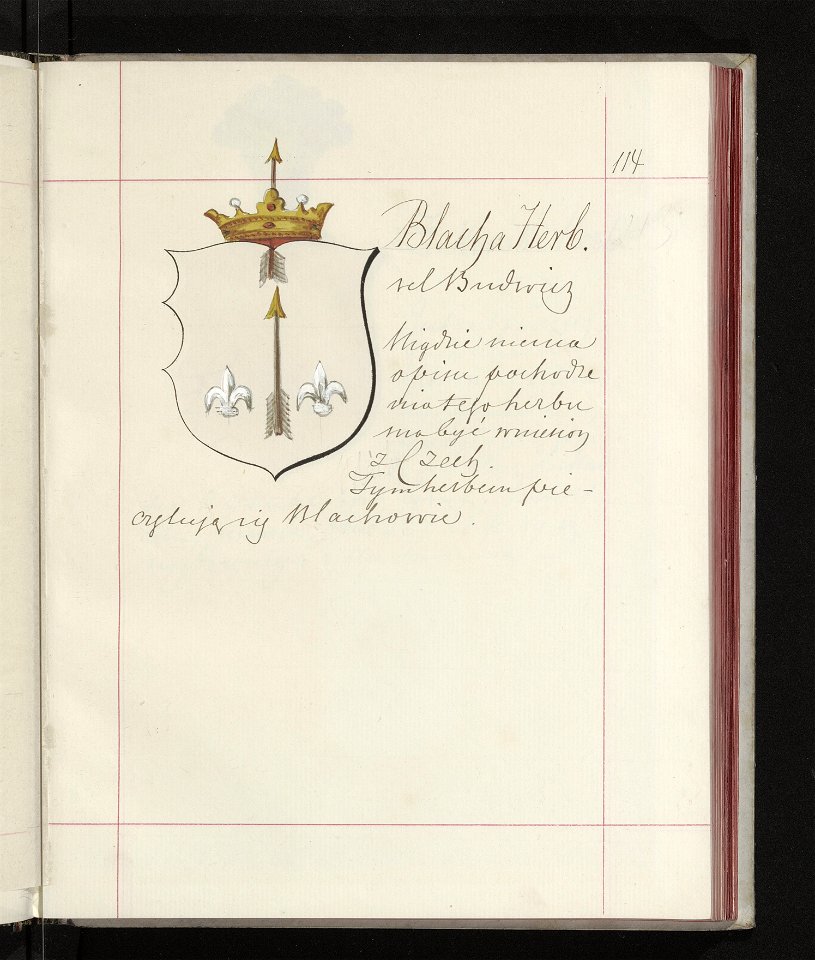 114
Blacha Herb.
vel Budwicz
Nigdzie niema
opisu pochodze
nia tego herbu
ma być wniesiony
z Czech.
Tym herbem pie-
czętują się Blachowie.